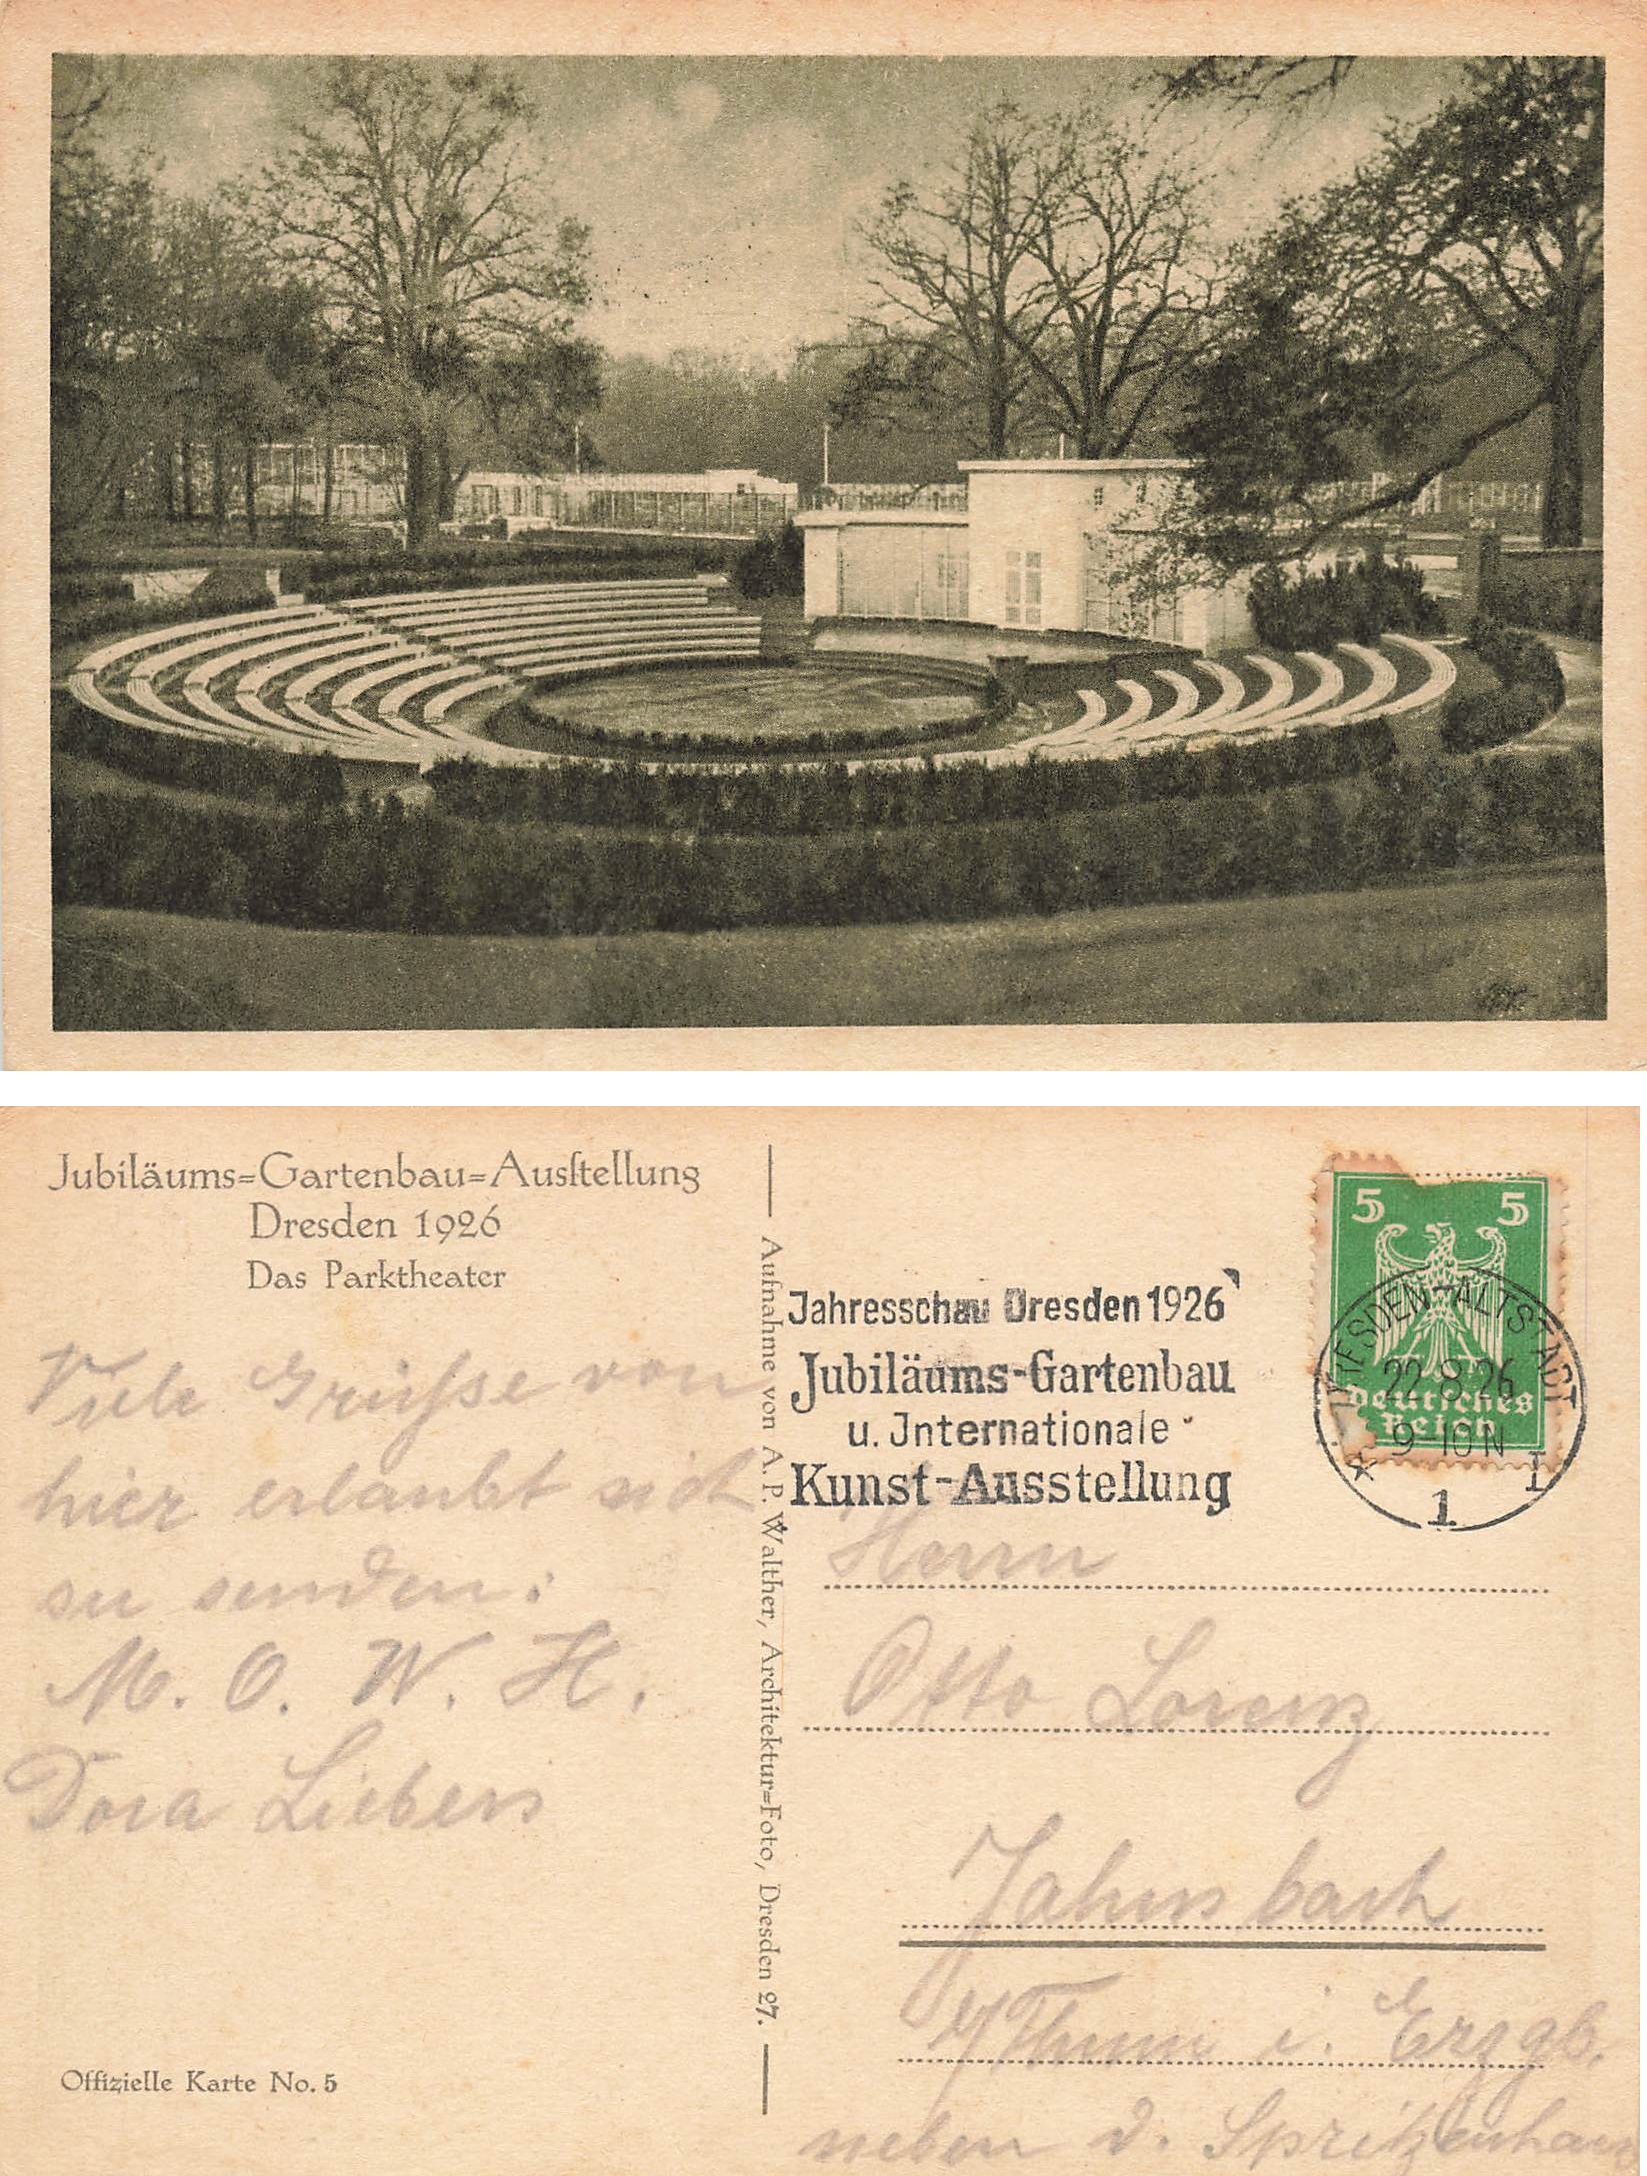 Jubiläums=Gartenbau=Ausſtellung
Dresden 1926
Das Parktheater
Viele Grüsse von
hier erlaubt sich
zu senden:
M. O. W. H.
Dora Liebers
Offizielle Karte No. 5
Aufnahme von A. P. Walther, Architektur=Foto, Dresden 27.
Jahresschau Dresden 1926
Jubiläums-Gartenbau
u. Internationale
Kunst-Ausstellung
5 5
Deutsches
Reich
DRESDEN-ALTSTADT
22.8.26
9-10 N
* 1 I
Herrn
Otto Lorenz
Jahnsbach
b/Thum i. Erzgb.
neben d. Spritzenhaus